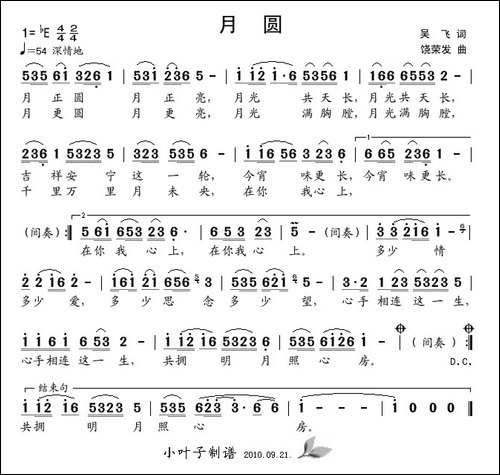 月 圆
1=♭E 4/4 2/4
吴 飞 词
♩=54 深情地
饶荣发 曲
535 61 3261 | 531 236 5 - | i i2 i·6 535 6 | 166 6553 5 - |
月 正圆 月 正亮， 月光 共天长，月光共天长，
月 更圆 月 更亮， 月光 满胸膛，月光满胸膛，
2361 5323 5 | 323 535 6 - | i i6 56 3 23 6 | 6 65 236 1 - |
吉祥安 宁 这 一 轮， 今宵 味更长，今宵 味更长。
千里万 里 月 未 央， 在你 我心上，
(间奏) :‖ 5 61 653 23 6· | 6 53 23 1 - | 5 - (间奏) | 3·3 216 1 - |
在你我 心上， 在你我心上。 多少 情
2 2 16 2 - | 3·3 21 656 3 | 535 621 5 - | 3·2 123 5323 5 |
多少 爱， 多少思念 多少 望， 心手相连这一生，
i i 6i 653 6 - | i i2 i6 5323 | 535 6126 i - | (间奏) :‖
心手相连 这一 生， 共拥 明月照心 房。 D.C.
结束句
i i2 i6 5323 | 535 623 3·6 6 | i - - - | i 0 0 0 ‖
共拥 明月照心 房。
小叶子制谱 2010.09.21.